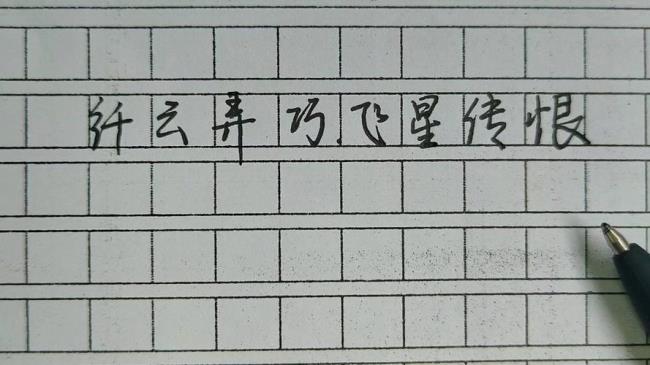 纤云弄巧飞星传恨